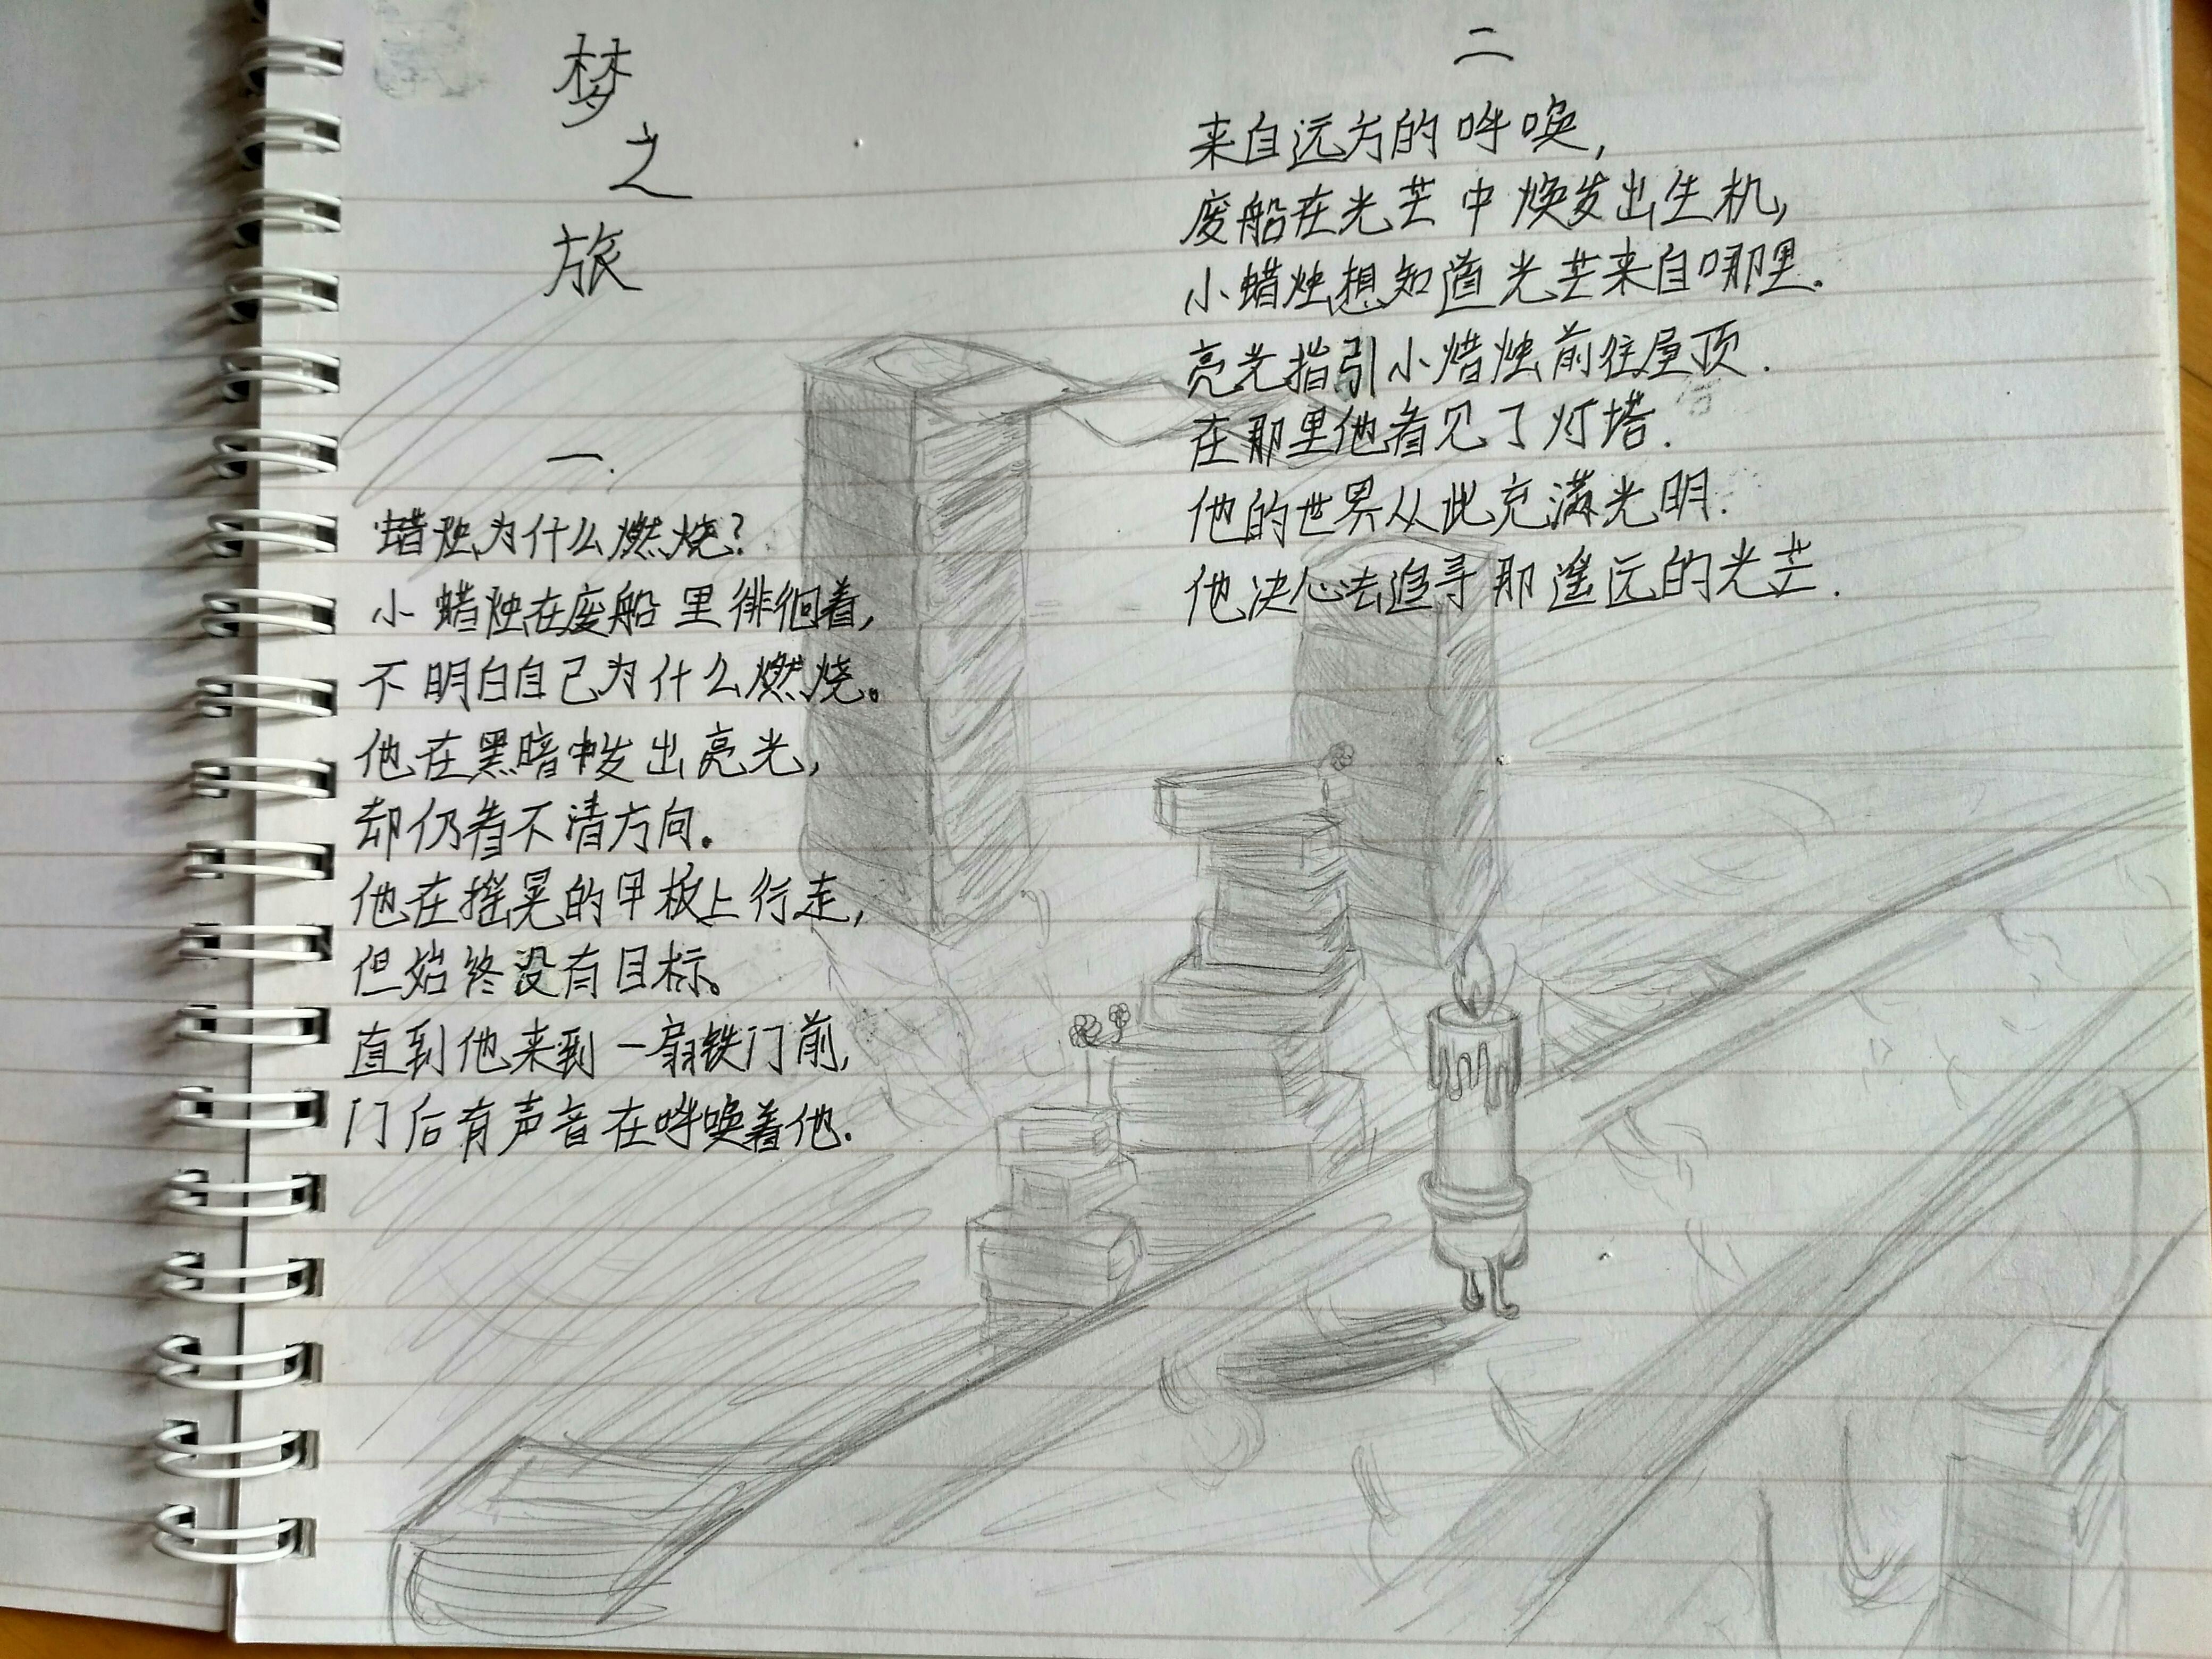 梦
之
旅
一.
蜡烛为什么燃烧?
小蜡烛在废船里徘徊着,
不明白自己为什么燃烧。
他在黑暗中发出亮光,
却仍看不清方向.
他在摇晃的甲板上行走,
但始终没有目标。
直到他来到一扇铁门前,
门后有声音在呼唤着他.
二
来自远方的呼唤,
废船在光芒中焕发出生机,
小蜡烛想知道光芒来自哪里.
亮光指引小蜡烛前往屋顶.
在那里他看见了灯塔.
他的世界从此充满光明.
他决心去追寻那遥远的光芒.